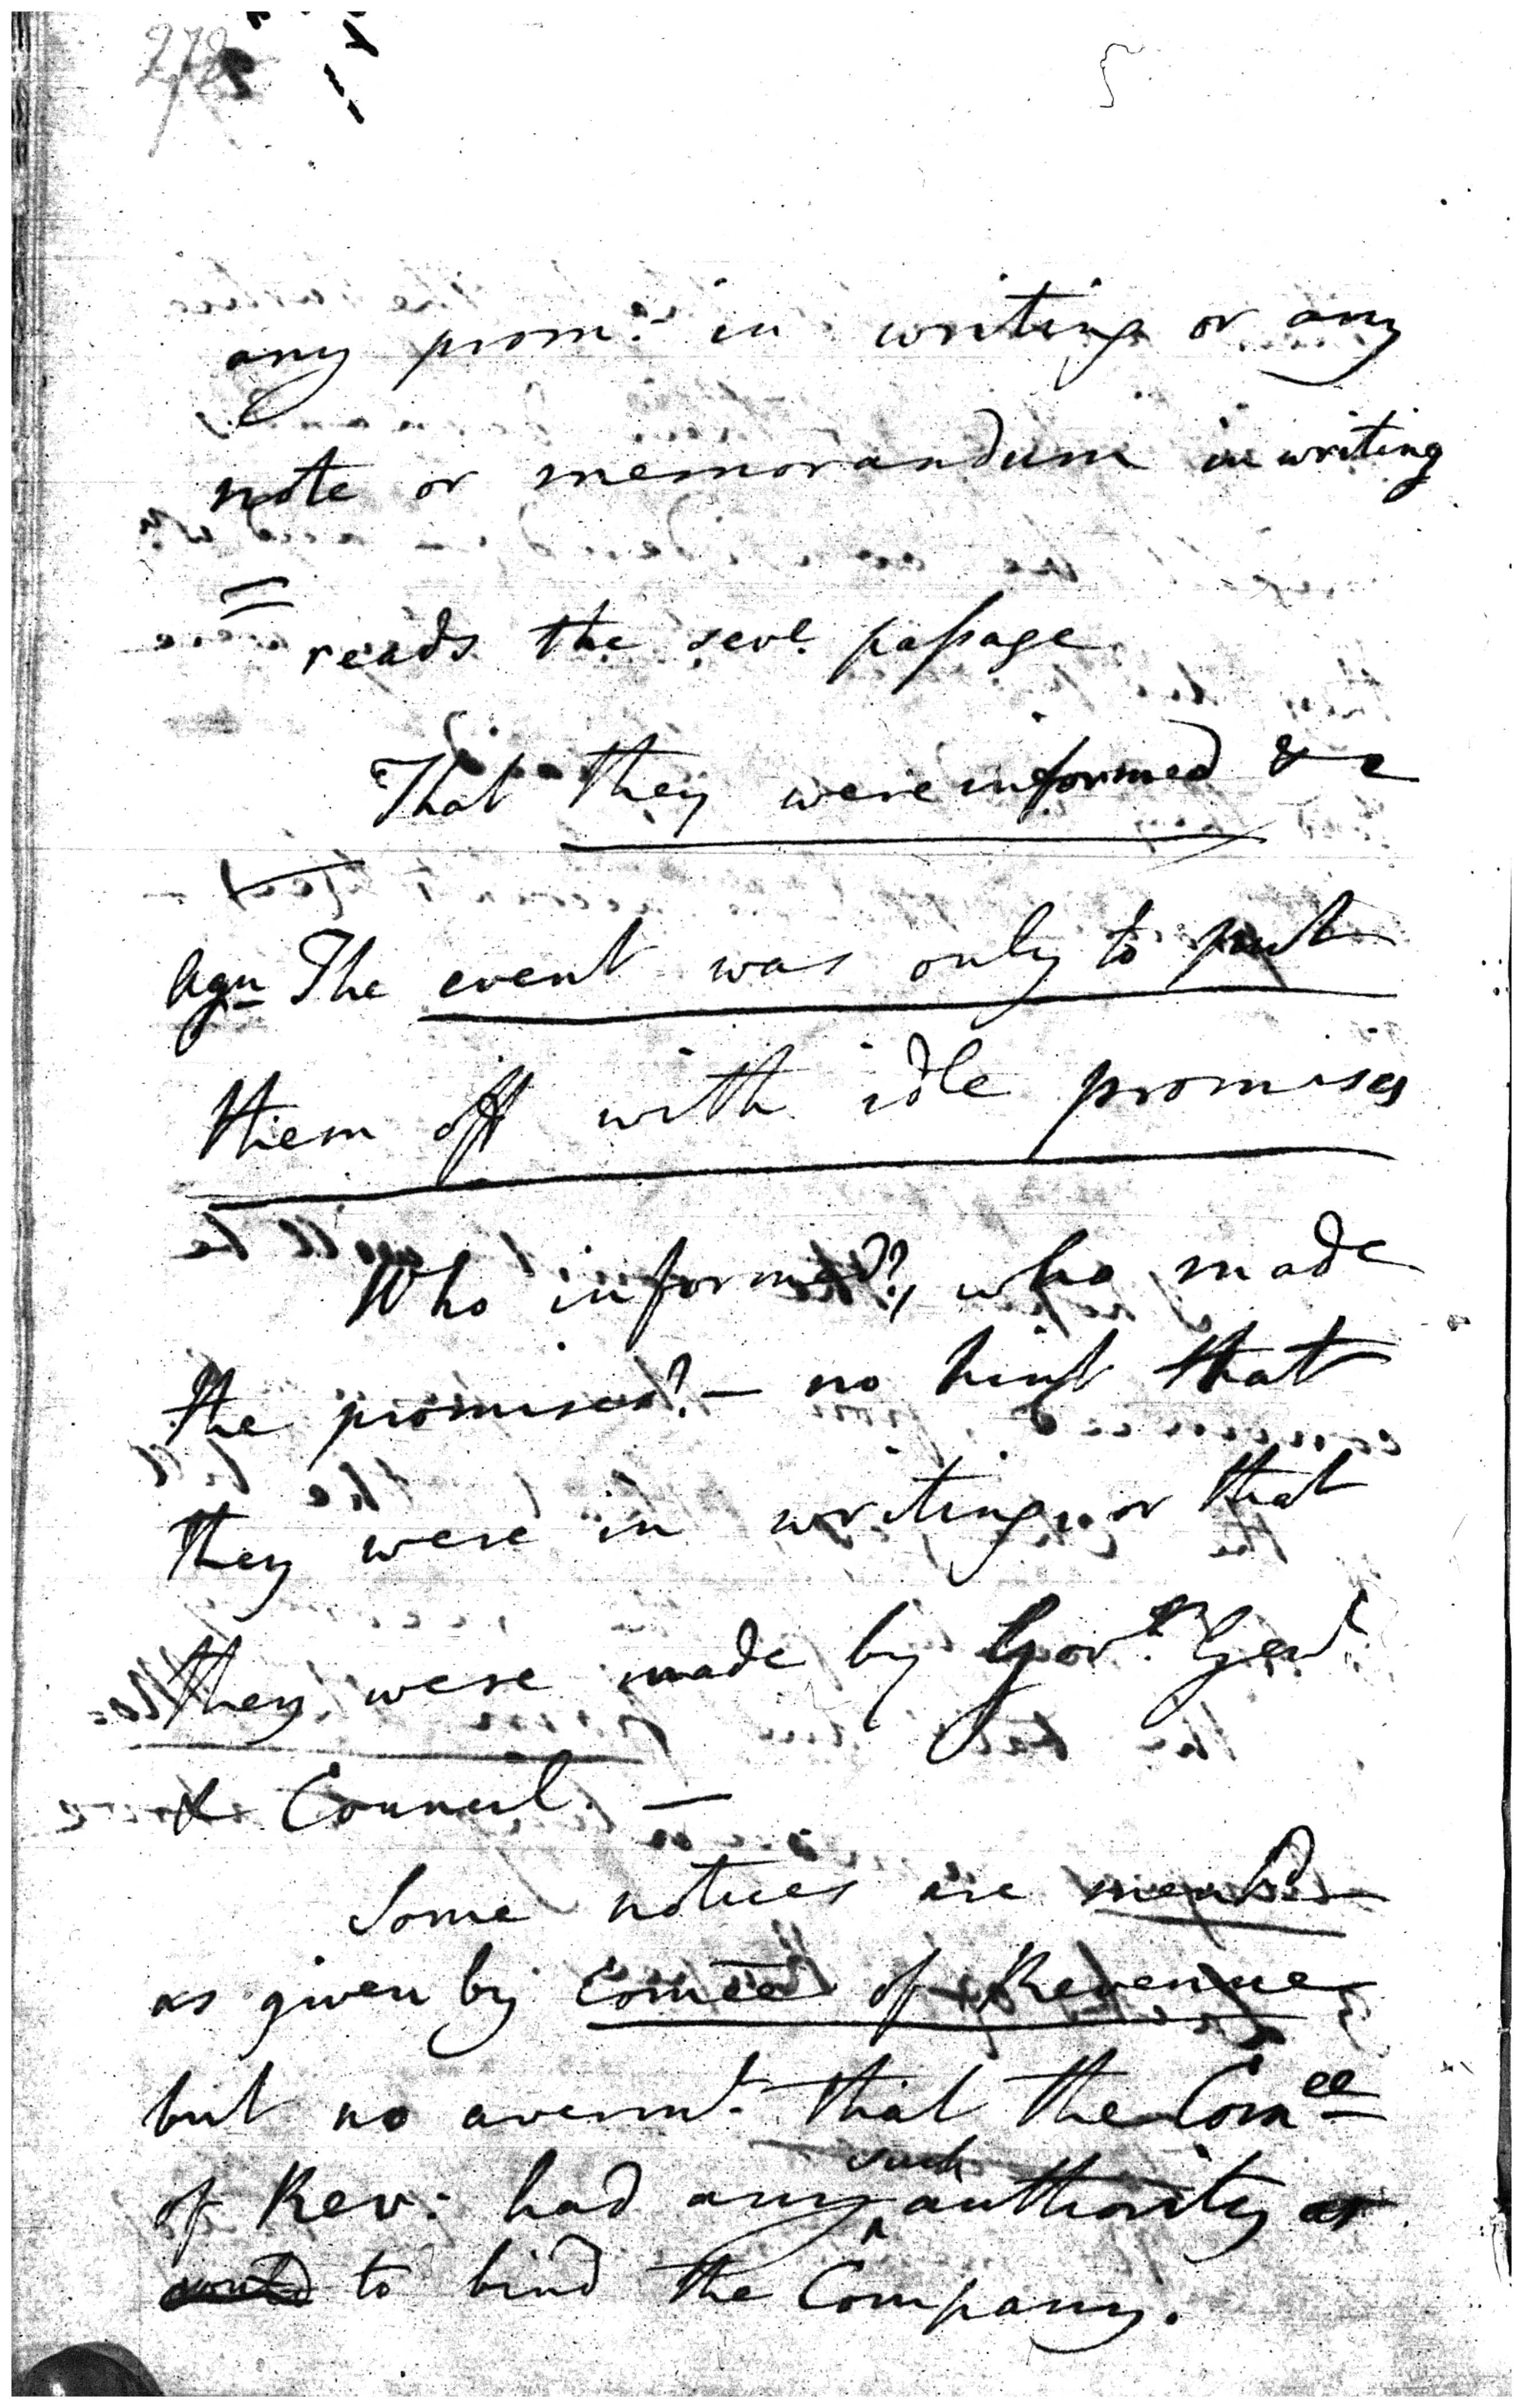 278
5
any prom: in writing or any
note or memorandum in writing
reads the sevl. paſsage
That they were informed &c
Agn The event was only to put
them off with idle promises
Who informed?, who made
the promises? — no hint that
they were in writing, or that
they were made by Govr. Genl.
& Council. —
Some notices are mentd
as given by Comēe of Revenue
but no avermt. that the Comee
of Rev: had any such authority as
would to bind the Company.